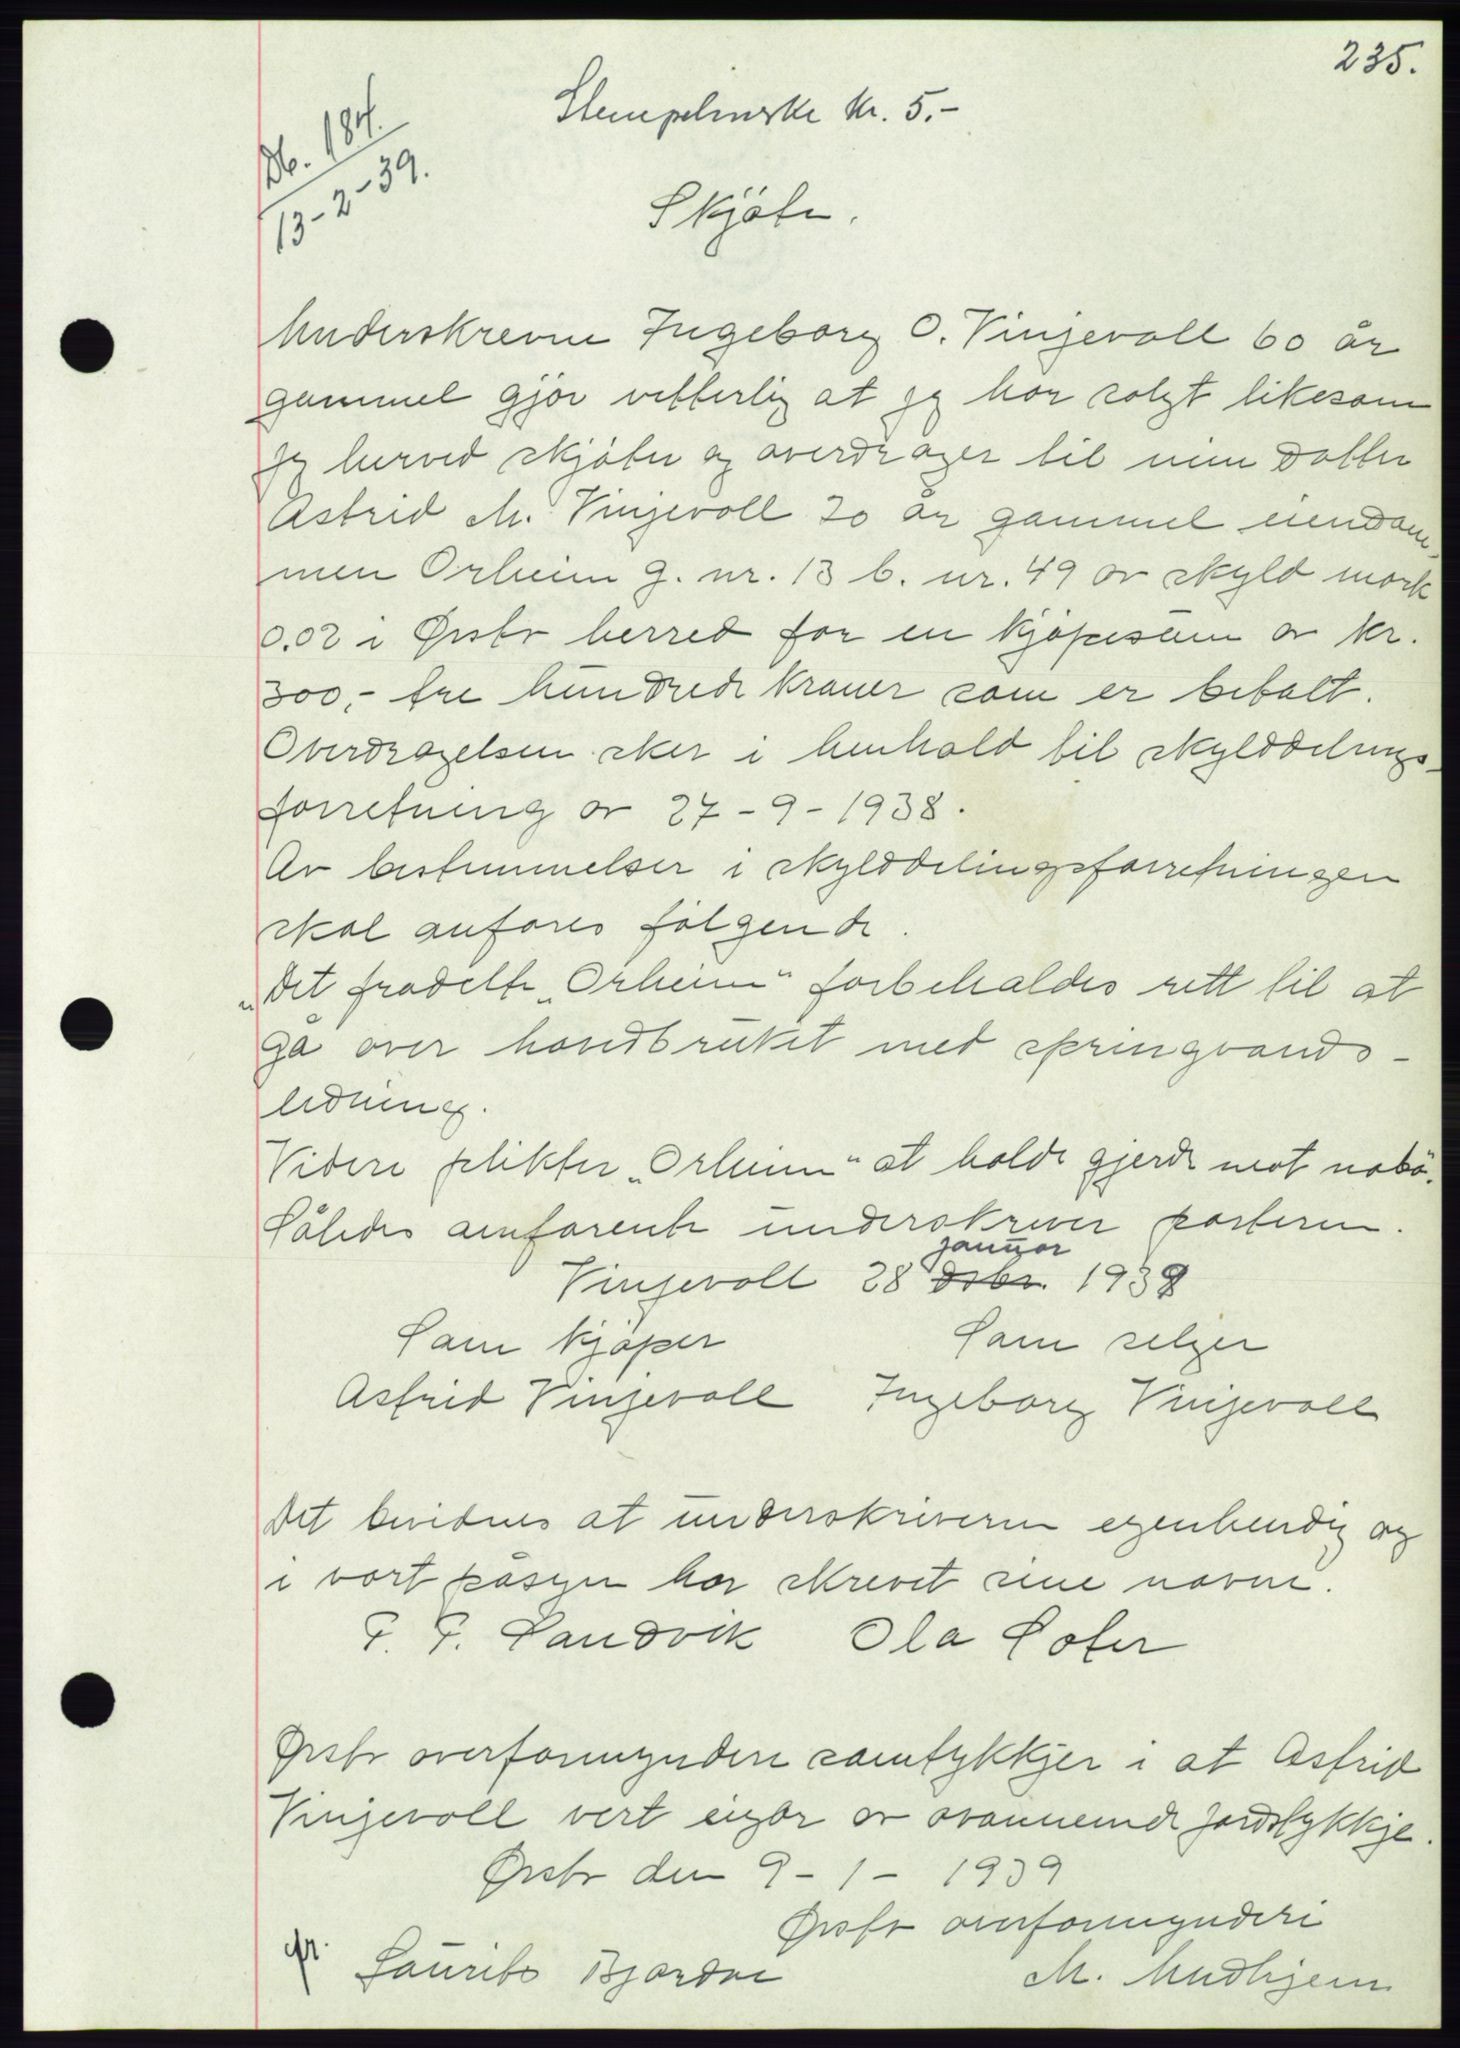 235.
Stempelmerke kr. 5.-
Db. 184.
13-2-39.
Skjøte.
Underskrevne Ingeborg O. Vinjevoll 60 år
gammel gjör vitterlig at jeg har solgt likesom
jeg herved skjøter og overdrager til min datter
Astrid M. Vinjevoll 20 år gammel eiendom-
men Orheim g. nr. 13 b. nr. 49 av skyld mark
0.02 i Ørsta herred for en kjøpesum av kr.
300,- tre hundrede kroner som er betalt.
Overdragelsen sker i henhold til skylddelings-
forretning av 27-9-1938.
Av bestemmelser i skylddelingsforretningen
skal anføres følgende.
"Det fradelte "Orheim" forbeholdes rett til at
gå over hovedbruket med springvands-
ledning.
Videre plikter "Orheim" at holde gjerde mot nabo.
Således omforente underskriver partene.
januar
Vinjevoll 28 desbr. 1939
Som kjøper Som selger
Astrid Vinjevoll Ingeborg Vinjevoll
Det bevidnes at underskriverne egenhendig og
i vort påsyn har skrevet sine navne.
P. P. Sandvik Ola Soter
Ørsta overformynderi samtykkjer i at Astrid
Vinjevoll vert eigar av ovannemnde jordstykkje.
Ørsta den 9-1-1939
Ørsta overformynderi
Laurits Bjørdal M. Mudhjem